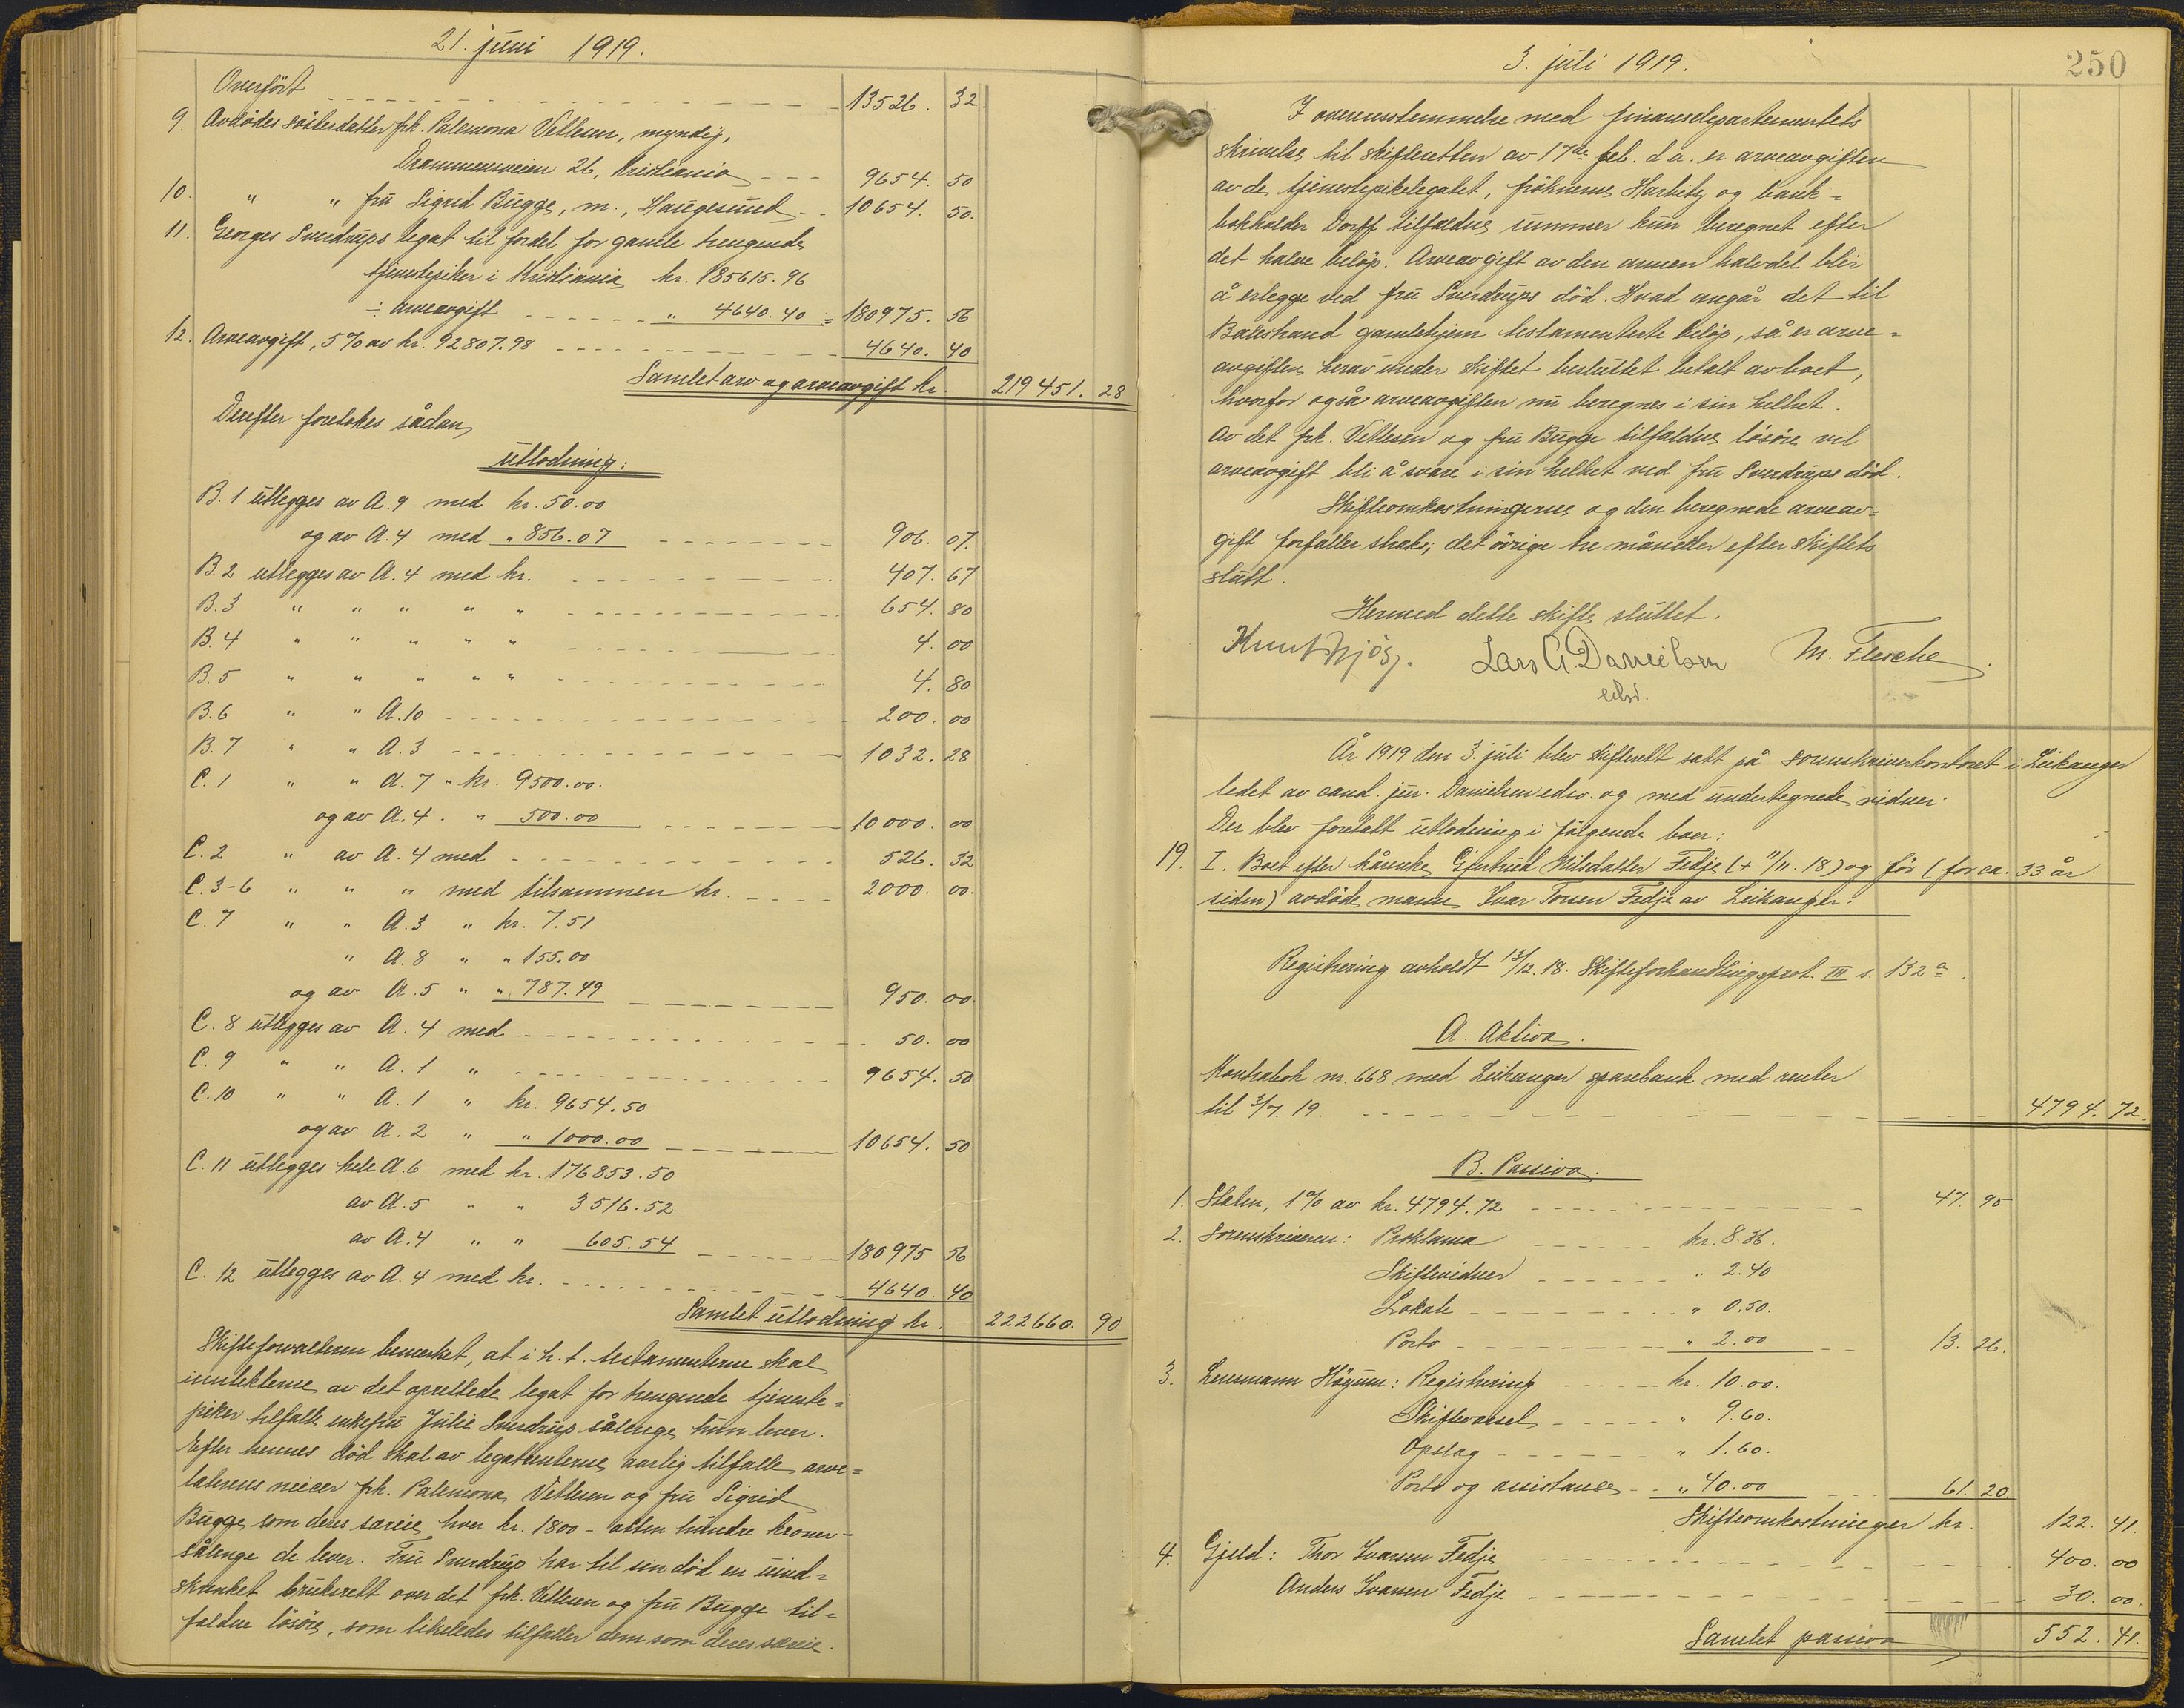 21. juni 1919.
Overført 13526. 32
9. Avdødes søsterdatter frk. Palemona Vetlesen, myndig,
Drammensveien 26, Kristiania 9654. 50
10. " " fru Sigrid Bugge, m., Haugesund 10654. 50.
11. Georges Sverdrups legat til fordel for gamle trengende
tjenestepiker i Kristiania kr. 185615.96
÷ arveavgift " 4640.40 = 180975. 56
12. Arveavgift, 5 % av kr. 92807.98 4640. 40
Samlet arv og arveavgift kr. 219451. 28
Derefter foretokes sådan
utlodning:
B. 1 utlegges av A. 9 med kr. 50.00
og av A. 4 med " 856.07 906. 07.
B. 2 utlegges av A. 4 med kr. 407. 67
B. 3 " " " " " 654. 80
B. 4 " " " " " 4. 00
B. 5 " " " " " 4. 80
B. 6 " " A. 10 200. 00
B. 7 " " A. 3 1032. 28
C. 1 " " A. 7 " kr. 9500.00.
og av A. 4. " 500.00 10000. 00
C. 2 " av A. 4 med 526. 32
C. 3-6 " " " med tilsammen kr. 2000. 00.
C. 7 " " A. 3 " kr. 7.51
" A. 8 " " 155.00
og av A. 5 " " 787.49 950. 00.
C. 8 utlegges av A. 4 med 50. 00
C. 9 " " A. 1 " 9654. 50
C. 10 " " A. 1 " kr. 9654.50
og av A. 2 " " 1000.00 10654. 50
C. 11 utlegges hele A. 6 med kr. 176853.50
av A. 5 " " 3516.52
av A. 4 " " 605.54 180975 56
C. 12 utlegges av A. 4 med kr. 4640. 40
Samlet utlodning kr. 222660. 90
Skifteforvalteren bemerket, at i h. t. testamenterne skal
inntekterne av det oprettede legat for trengende tjeneste=
piker tilfalle enkefru Julie Sverdrup sålenge hun lever.
Efter hennes død skal av legatrenterne aarlig tilfalle arve=
laterens niecer frk. Palemona Vetlesen og fru Sigrid
Bugge som deres særeie hver kr. 1800 - atten hundre kroner -
sålenge de lever. Fru Sverdrup har til sin død en uind=
skrenket bruksrett over det frk. Vetlesen og fru Bugge til=
faldne løsøre, som likeledes tilfaller dem som deres særeie.
3. juli 1919.
250
I overensstemmelse med finansdepartementets
skrivelse til skifteretten av 17de feb. d. a. er arveavgiften
av de tjenestepikelegatet, frøknerne Harbitz og bank=
bokholder Dorff tilfaldne summer kun beregnet efter
det halve beløp. Arveavgift av den annen halvdel blir
å erlegge ved fru Sverdrups død. Hvad angår det til
Balestrand gamlehjem testamenterte beløp, så er arve=
avgiften herav under skiftet besluttet betalt av boet,
hvorfor også arveavgiften nu beregnes i sin helhet.
Av det frk. Vetlesen og fru Bugge tilfaldne løsøre vil
arveavgift bli å svare i sin helhet ved fru Sverdrups død.
Skifteomkostningerne og den beregnede arveav=
gift forfaller straks; det øvrige tre måneder efter skiftets
slutt.
Hermed dette skifte sluttet.
Lars A. Danielsen M. Flesche
edsv.
År 1919 den 3. juli blev skifterett satt på sorenskriverkontoret i Leikanger
ledet av cand. jur. Danielsen edsv. og med undertegnede vidner.
Der blev foretatt utlodning i følgende boer:
19. I. Boet efter kårenke Gjertrud Nilsdatter Fedje (+ 11/11. 18) og før (for ca. 33 år
siden) avdøde mann Ivar Torsen Fedje av Leikanger.
Registrering avholdt 13/12. 18. Skifteforhandlingsprot. III s. 132 a.
A. Aktiva.
Kontrabok nr. 668 med Leikanger sparebank med renter
til 3/7. 19. 4794. 72.
B. Passiva.
1. Staten, 1 % av kr. 4794.72 47. 95
2. Sorenskriveren: Proklama kr. 8.36.
Skiftevidner " 2.40
Lokale " 0.50.
Porto " 2.00 13. 26.
3. Lensmann Høgum: Registrering kr. 10.00.
Skiftevarsel " 9.60.
Opslag " 1.60.
Porto og assistanse " 40.00 61. 20.
Skifteomkostninger kr. 122. 41.
4. Gjeld: Thor Ivarsen Fedje 400. 00
Anders Ivarsen Fedje 30. 00.
Samlet passiva 552. 41.